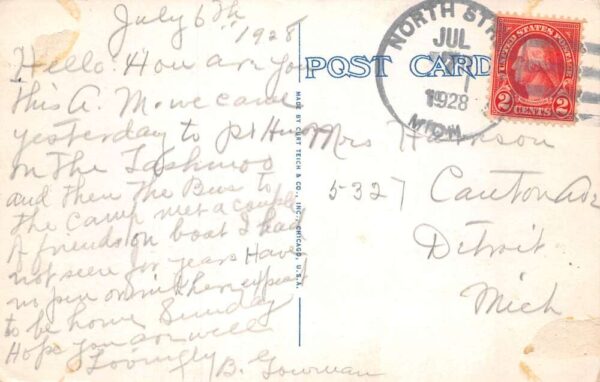 July 6th
1928
Hello: How are you
this A. M. we came
yesterday to Pt Huron
on the Tashmoo
and then the Bus to
the camp met a couple
of friends on boat I had
not seen for years Have
no pen or ink here expect
to be home Sunday
Hope you are well
Lovingly B. Gowman
POST CARD
MADE BY CURT TEICH & CO., INC., CHICAGO, U.S.A.
NORTH ST
JUL
1928
MICH.
UNITED STATES POSTAGE
2 CENTS 2
Mrs
5327 Canton Ave
Detroit
Mich